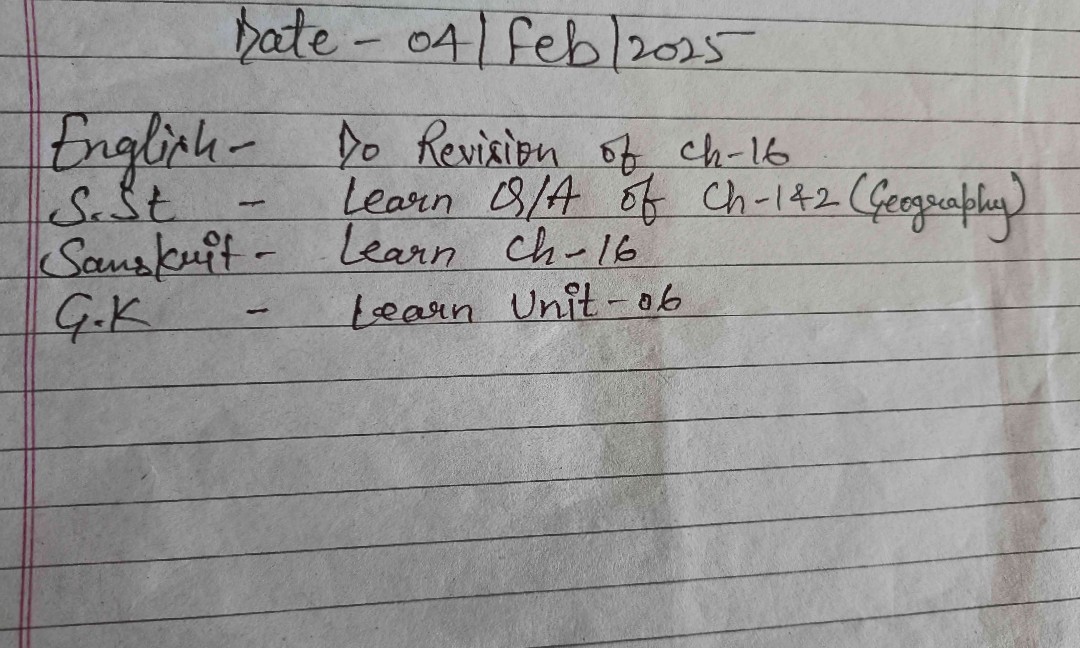 Date - 04/Feb/2025
English - Do Revision of ch-16
S.St - Learn Q/A of Ch-1&2 (Geography)
Sanskrit - Learn Ch-16
G.K - Learn Unit-06